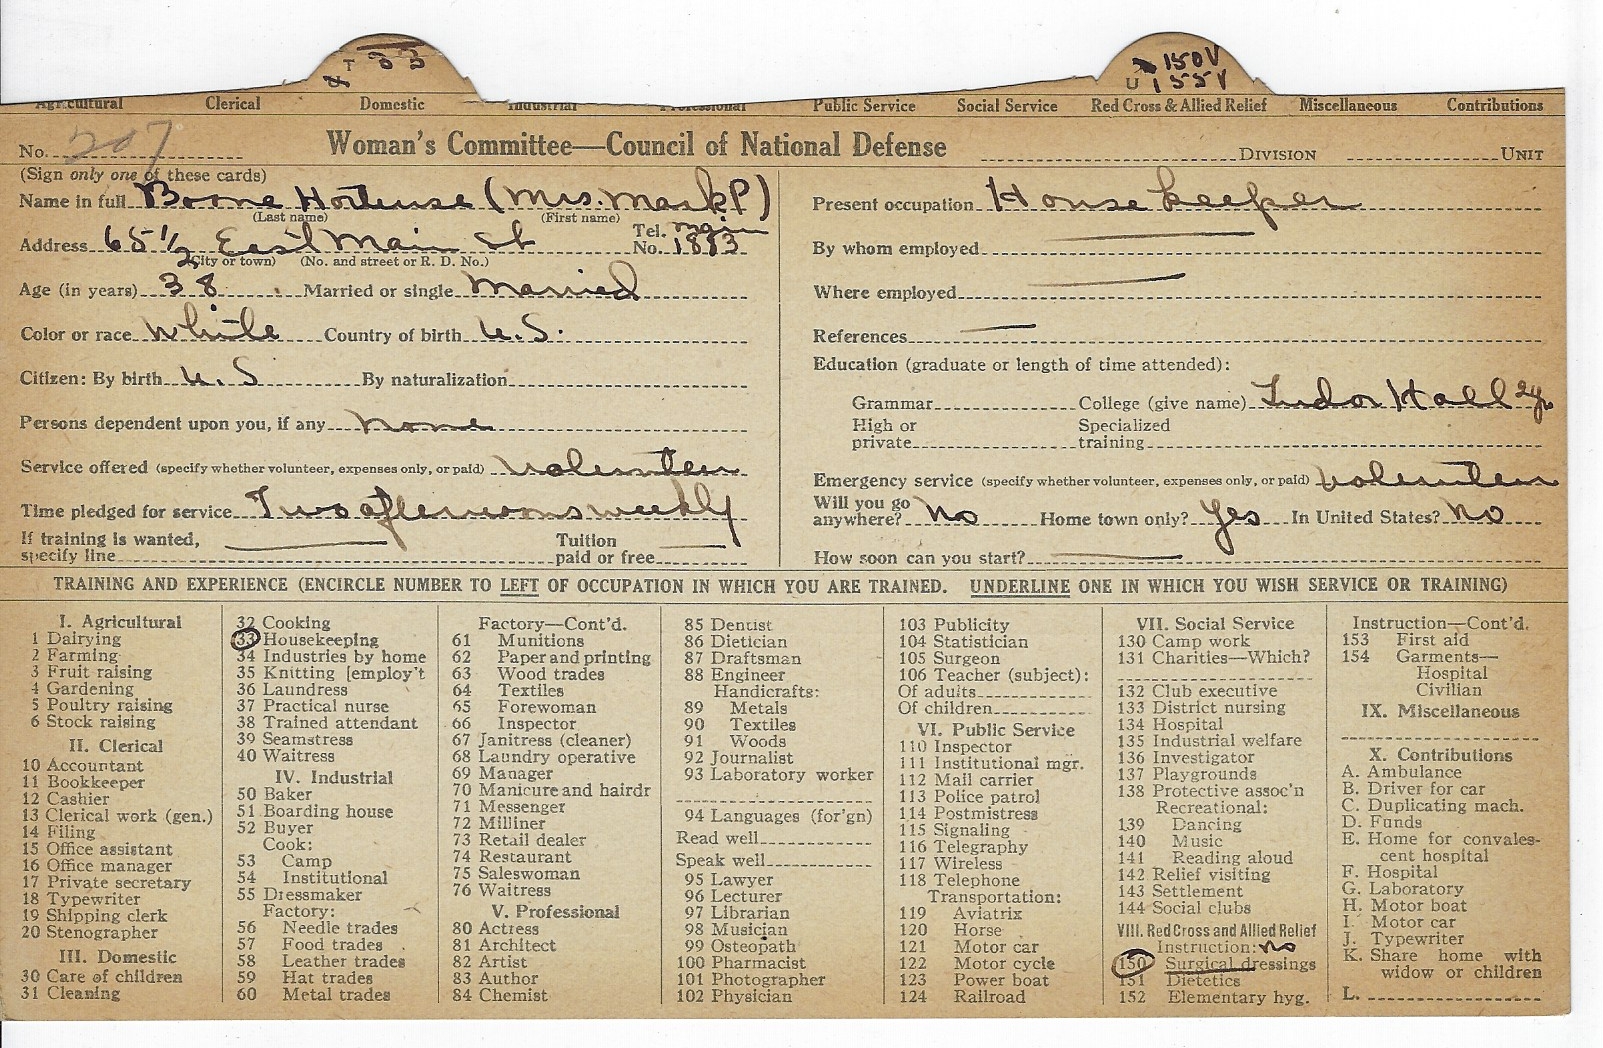 T 33
150V
U 155V
Agricultural Clerical Domestic Industrial Professional Public Service Social Service Red Cross & Allied Relief Miscellaneous Contributions
No. 207 Woman's Committee—Council of National Defense DIVISION UNIT
(Sign only one of these cards)
Name in full Boone Hortense (Mrs. Mark P)
(Last name) (First name)
Address 65 1/2 East Main St Tel. No. Main 1883
(City or town) (No. and street or R. D. No.)
Age (in years) 38 Married or single Married
Color or race White Country of birth U.S.
Citizen: By birth U.S By naturalization
Persons dependent upon you, if any none
Service offered (specify whether volunteer, expenses only, or paid) Volunteer
Time pledged for service Two afternoons weekly
If training is wanted, Tuition
specify line paid or free
Present occupation Housekeeper
By whom employed
Where employed
References
Education (graduate or length of time attended):
Grammar College (give name) Tudor Hall 2 yr
High or Specialized
private training
Emergency service (specify whether volunteer, expenses only, or paid) Volunteer
Will you go
anywhere? No Home town only? Yes In United States? No
How soon can you start?
TRAINING AND EXPERIENCE (ENCIRCLE NUMBER TO LEFT OF OCCUPATION IN WHICH YOU ARE TRAINED. UNDERLINE ONE IN WHICH YOU WISH SERVICE OR TRAINING)
I. Agricultural
1 Dairying
2 Farming
3 Fruit raising
4 Gardening
5 Poultry raising
6 Stock raising
II. Clerical
10 Accountant
11 Bookkeeper
12 Cashier
13 Clerical work (gen.)
14 Filing
15 Office assistant
16 Office manager
17 Private secretary
18 Typewriter
19 Shipping clerk
20 Stenographer
III. Domestic
30 Care of children
31 Cleaning
32 Cooking
33 Housekeeping
34 Industries by home
35 Knitting [employ't
36 Laundress
37 Practical nurse
38 Trained attendant
39 Seamstress
40 Waitress
IV. Industrial
50 Baker
51 Boarding house
52 Buyer
Cook:
53 Camp
54 Institutional
55 Dressmaker
Factory:
56 Needle trades
57 Food trades
58 Leather trades
59 Hat trades
60 Metal trades
Factory—Cont'd.
61 Munitions
62 Paper and printing
63 Wood trades
64 Textiles
65 Forewoman
66 Inspector
67 Janitress (cleaner)
68 Laundry operative
69 Manager
70 Manicure and hairdr
71 Messenger
72 Milliner
73 Retail dealer
74 Restaurant
75 Saleswoman
76 Waitress
V. Professional
80 Actress
81 Architect
82 Artist
83 Author
84 Chemist
85 Dentist
86 Dietician
87 Draftsman
88 Engineer
Handicrafts:
89 Metals
90 Textiles
91 Woods
92 Journalist
93 Laboratory worker
94 Languages (for'gn)
Read well
Speak well
95 Lawyer
96 Lecturer
97 Librarian
98 Musician
99 Osteopath
100 Pharmacist
101 Photographer
102 Physician
103 Publicity
104 Statistician
105 Surgeon
106 Teacher (subject):
Of adults
Of children
VI. Public Service
110 Inspector
111 Institutional mgr.
112 Mail carrier
113 Police patrol
114 Postmistress
115 Signaling
116 Telegraphy
117 Wireless
118 Telephone
Transportation:
119 Aviatrix
120 Horse
121 Motor car
122 Motor cycle
123 Power boat
124 Railroad
VII. Social Service
130 Camp work
131 Charities—Which?
132 Club executive
133 District nursing
134 Hospital
135 Industrial welfare
136 Investigator
137 Playgrounds
138 Protective assoc'n
Recreational:
139 Dancing
140 Music
141 Reading aloud
142 Relief visiting
143 Settlement
144 Social clubs
VIII. Red Cross and Allied Relief
Instruction: No
150 Surgical dressings
151 Dietetics
152 Elementary hyg.
Instruction—Cont'd.
153 First aid
154 Garments—
Hospital
Civilian
IX. Miscellaneous
X. Contributions
A. Ambulance
B. Driver for car
C. Duplicating mach.
D. Funds
E. Home for convales-
cent hospital
F. Hospital
G. Laboratory
H. Motor boat
I. Motor car
J. Typewriter
K. Share home with
widow or children
L.